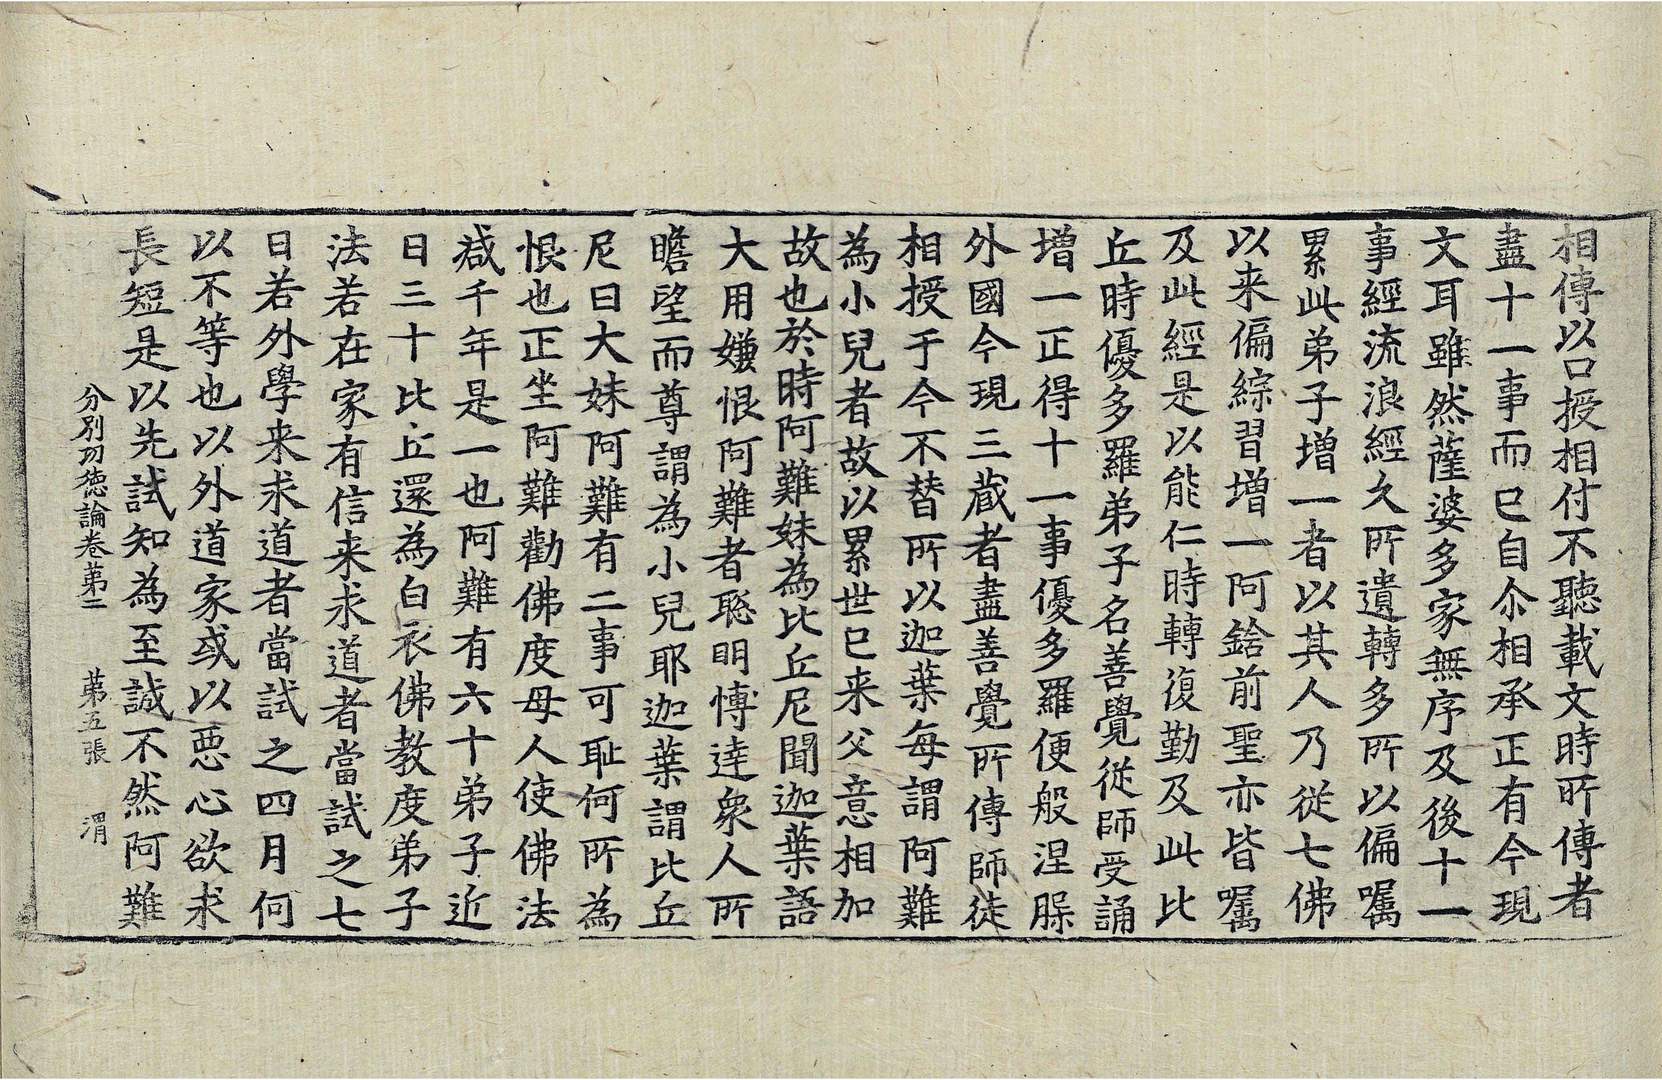 相傳以口授相付不聽載文時所傳者
盡十一事而已自尒相承正有今現
文耳雖然薩婆多家無序及後十一
事經流浪經久所遺轉多所以偏囑
累此弟子增一者以其人乃從七佛
以来偏綜習增一阿鋡前聖亦皆囑
及此經是以能仁時轉復勤及此比
丘時優多羅弟子名善覺從師受誦
增一正得十一事優多羅便般涅槃
外國今現三藏者盡善覺所傳師徒
相授于今不替所以迦葉每謂阿難
為小兒者故以累世已来父意相加
故也於時阿難妹為比丘尼聞迦葉語
大用嫌恨阿難者聡明愽逹衆人所
瞻望而尊謂為小兒耶迦葉謂比丘
尼曰大妹阿難有二事可耻何所為
恨也正坐阿難勸佛度母人使佛法
減千年是一也阿難有六十弟子近
日三十比丘還為白衣佛教度弟子
法若在家有信来求道者當試之七
日若外學来求道者當試之四月何
以不等也以外道家或以惡心欲求
長短是以先試知為至誠不然阿難
分別功徳論卷苐二 苐五張 渭